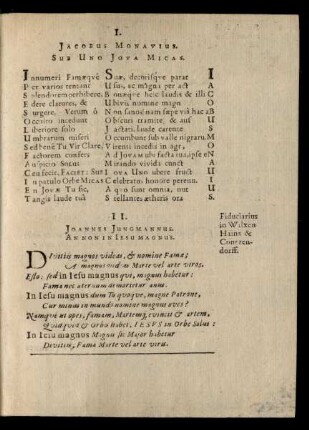 I.
JACOBUS MONAVIUS.
SUB UNO JOVA MICAS.
Innumeri Famæque Suæ, decorisque parat I
Per varios tentant Usus, ac magna per act A
Splendorem perhibere, Bonæque hele laudis & illi C
Edere clarores, de Ubivis numine magn O
Surgere. Verum ô Non
Occulto incedunt Obscuri tramite, & aus U
Liberiore solo Jactari. laude carente S
Umbrarum miseri Occumbunt sub valle nigrarum. M
Sed benè Tu Vir Clare, Virenti inendia in agr, O
Factorem confers Ad Jovam ubi facta tua, ipse N
Auspicio Solus Mirando vividâ cunct A
Causs fecit, FACIET: Sub Iova Uno ubere fruct U
In patulo Orbe MICAS Celebrato honore perenni. I
En Jovæ Tu sic, A quo sunt omnia, nut U
Tangis laude tuâ Stellantes ætheris ora S.
II.
JOANNES JUNGMANNUS.
AN NON IN IESU MAGNUS.
Fiduciarius
in Walxen
Hains &
Divitiis magnus videas, & nomine Fama;
A magnos videas Marte vel arte viros.
Esto: sed in Iesu magnus qui, magnus habetur:
Fama nec æternum demoritur
In Iesu magnus dum Tu quoque, magne Patrone,
Cur minus in mundo nomine magnus eves?
Namque ut opes, famam, Martemq; evincit & artem,
Quidquid & Orbis habet, IESUS in Orbe Salus:
In Iesu magnus Magnis sic Major habetur
Divitiis, Fama Marte vel arte viris.